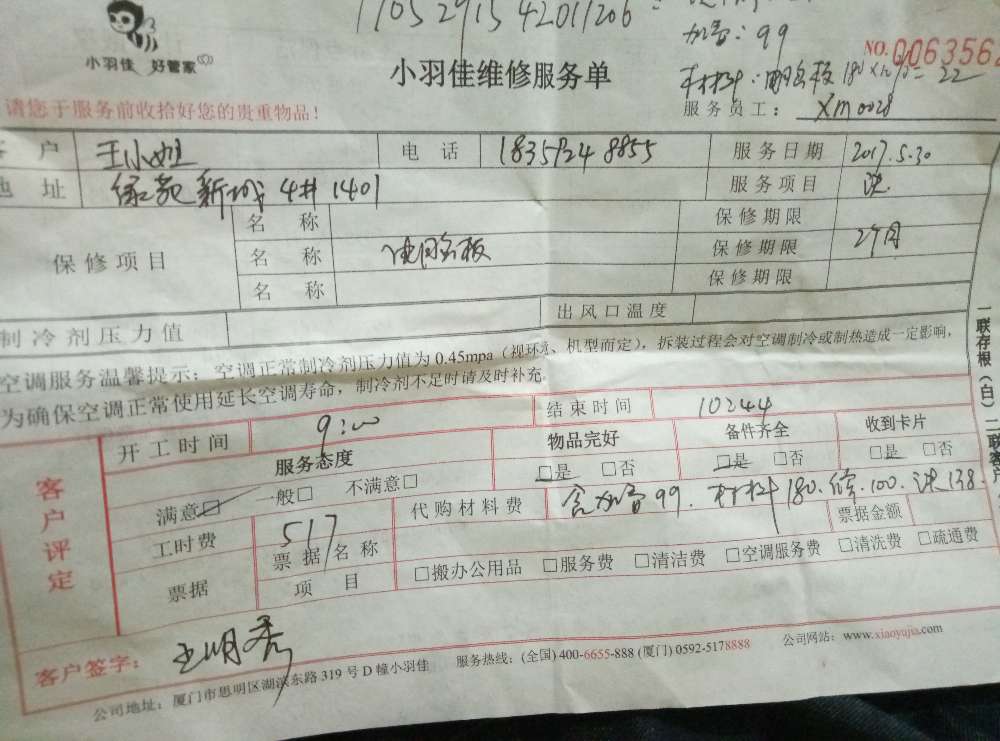 1105291542011206
加香：99
小羽佳 好管家
小羽佳维修服务单
NO.0063562
请您于服务前收拾好您的贵重物品！
服务员工： XM0028
客户 王小姐 电话 18359248855 服务日期 2017.5.30
地址 绿苑新城4# 1401 服务项目 洗
保修项目
名称 保修期限
名称 保修期限 2个月
名称 保修期限
制冷剂压力值 出风口温度
空调服务温馨提示：空调正常制冷剂压力值为0.45mpa（视环境、机型而定），拆装过程会对空调制冷或制热造成一定影响，
为确保空调正常使用延长空调寿命，制冷剂不足时请及时补充
一联存根（白）二联客户
客户评定
开工时间 9:00 结束时间
服务态度 物品完好 备件齐全 收到卡片
满意□ 一般□ 不满意□ □是 □否 □是 □否 □是 □否
工时费 517 代购材料费 含加香99. 材料180. 修.100. 洗138.
票据 票据名称 票据金额
项目 □搬办公用品 □服务费 □清洁费 □空调服务费 □清洗费 □疏通费
客户签字：
公司地址：厦门市思明区湖滨东路319号D幢小羽佳 服务热线：(全国) 400-6655-888 (厦门) 0592-5178888 公司网站：www.xiaoyujia.com